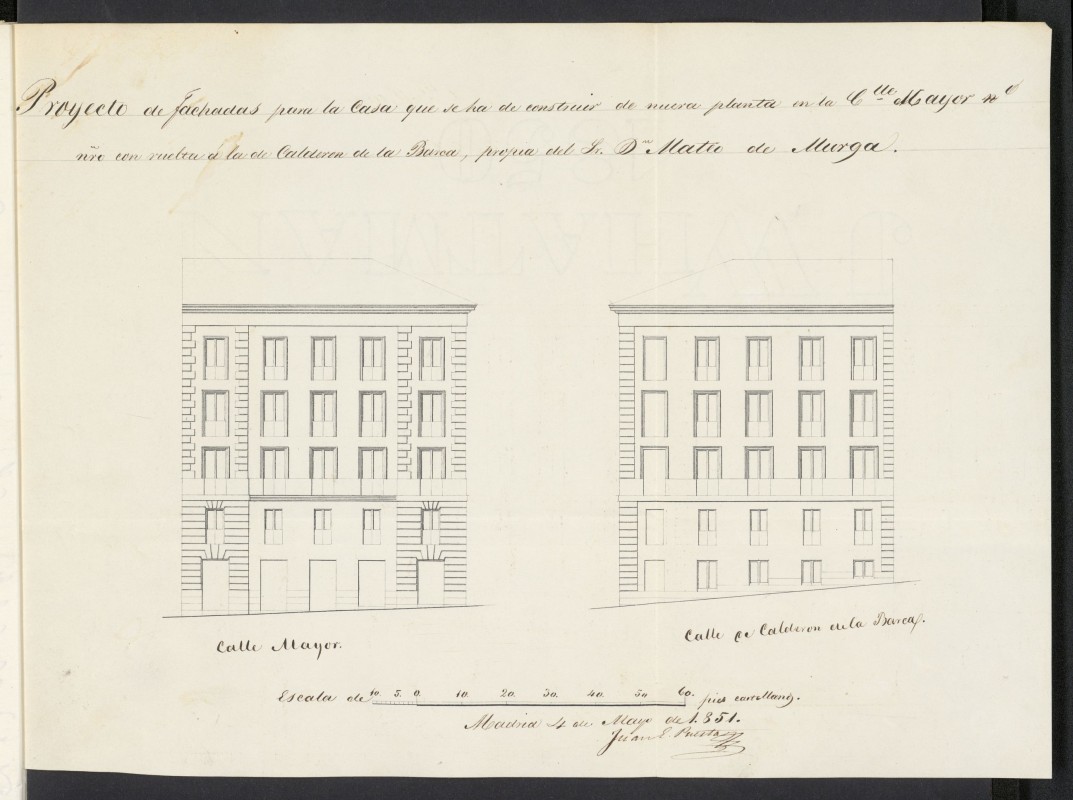 Proyecto de fachadas para la Casa que se ha de construir de nueva planta en la Clle Mayor nº
nro con vuelta á la de Calderon de la Barca, propia del Sr. Dn Mateo de Murga.
Calle Mayor.
Calle de Calderon de la Barca.
Escala de 10. 5. 0. 10. 20. 30. 40. 50 60. pies castellanos.
Madrid 4 de Mayo de 1.851.
Juan E. Puerta